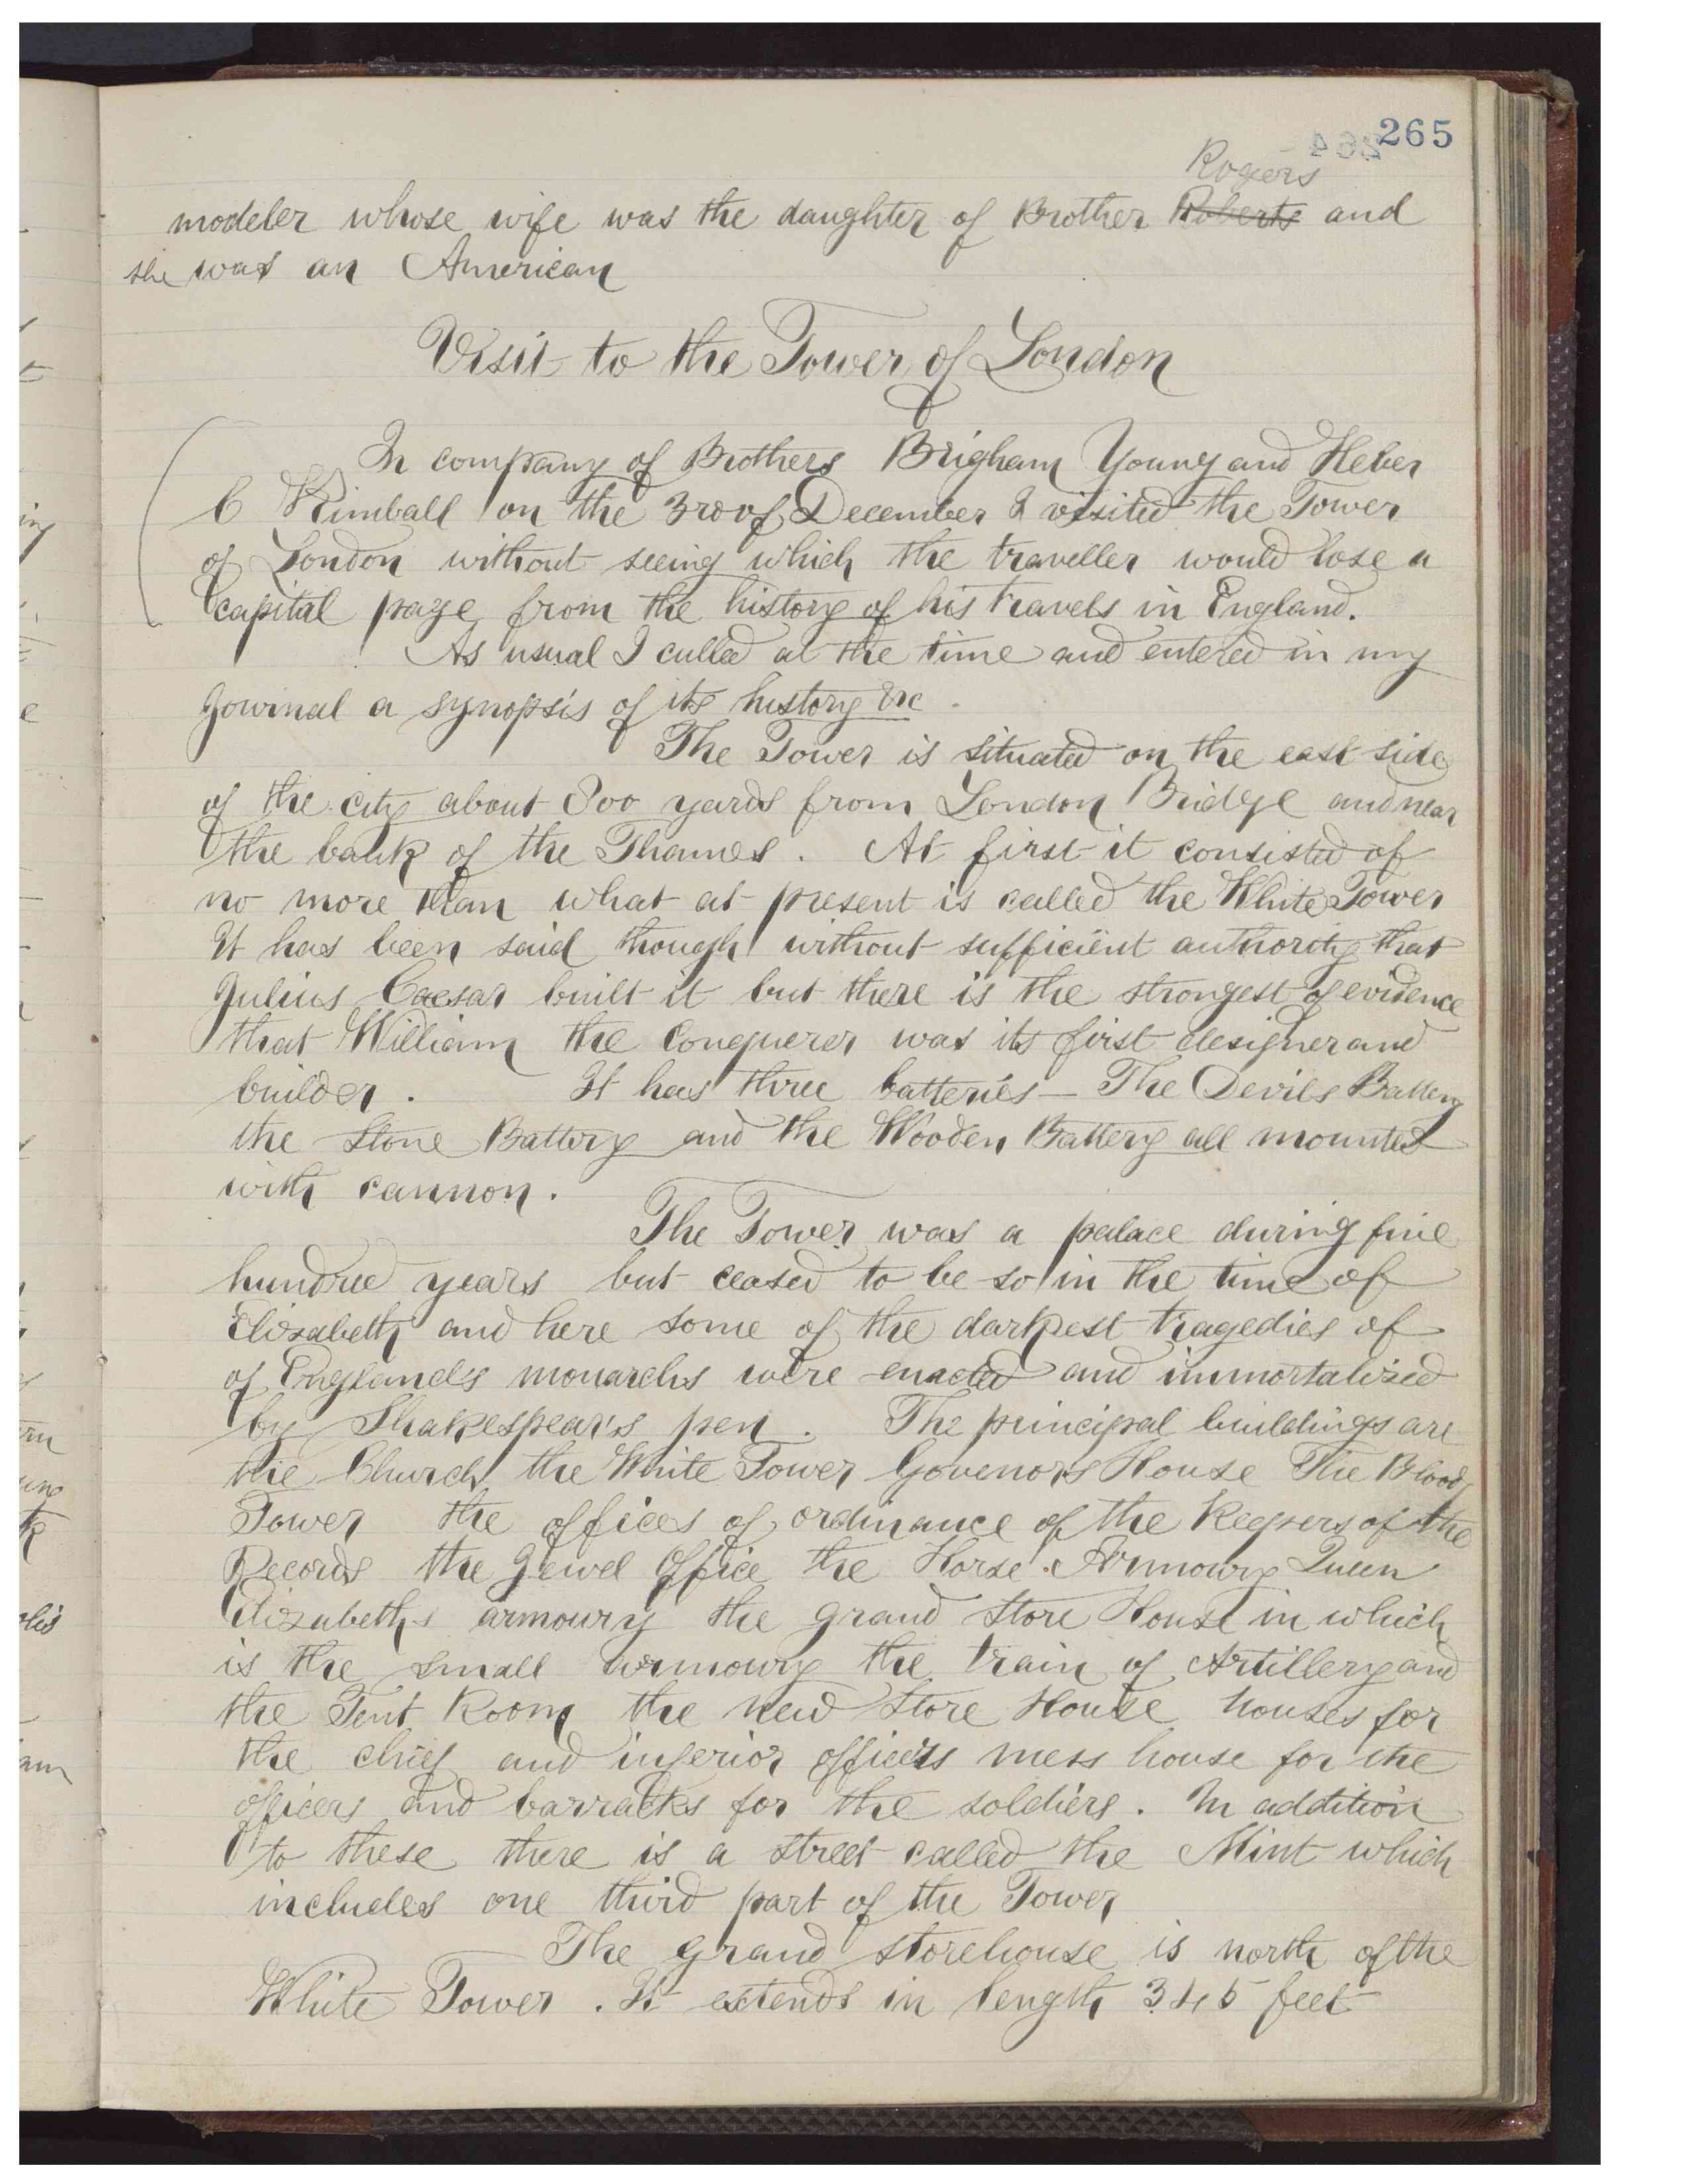 265
Rogers
modeler whose wife was the daughter of Brother Roberts and
she was an American
Visit to the Tower of London
In company of Brothers Brigham Young and Heber
C Kimball on the 3rd of December I visited the Tower
of London without seeing which the traveller would lose a
capital page from the history of his travels in England.
As usual I culled at the time and entered in my
Journal a synopsis of its history &c.
The Tower is situated on the east side
of the city about 800 yards from London Bridge and near
the bank of the Thames. At first it consisted of
no more than what at present is called the White Tower
It has been said though without sufficient authority that
Julius Caesar built it but there is the strongest of evidence
that William the Conquerer was its first designer and
builder. It has three batteries — The Devils Battery
the Stone Battery and the Wooden Battery all mounted
with cannon.
The Tower was a palace during five
hundred years but ceased to be so in the time of
Elizabeth and here some of the darkest tragedies of
of Englands monarchs were enacted and immortalized
by Shakespear's pen. The principal buildings are
the Church the White Tower Govenors House The Bloody
Tower the offices of ordinance of the Keepers of the
Records the Jewel Office the Horse Armoury Queen
Elizabeths armoury the grand Store House in which
is the small armoury the train of Artillery and
the Tent Room the new Store House houses for
the chief and inferior officers mess house for the
officers and barracks for the soldiers. In addition
to these there is a street called the Mint which
includes one third part of the Tower
The grand storehouse is north of the
White Tower. It extends in length 345 feet